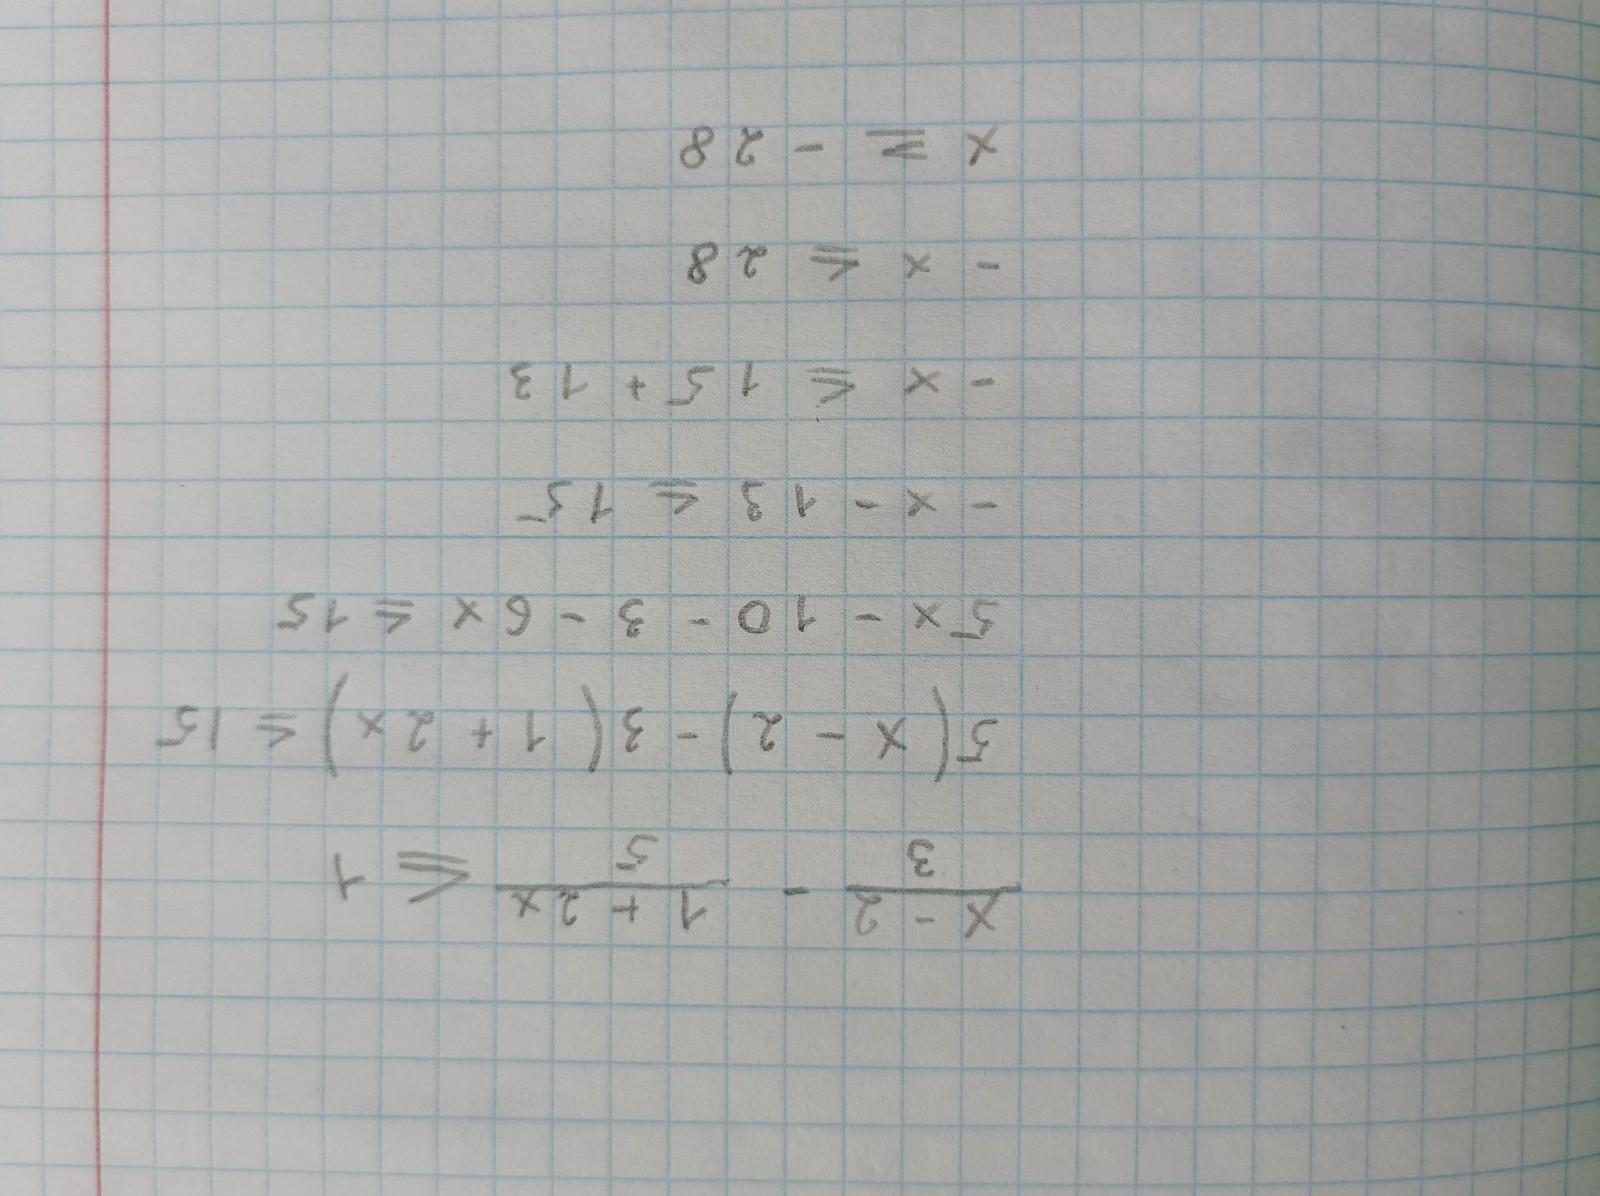 \frac{x - 2}{3} - \frac{1 + 2x}{5} ≤ 1
5(x - 2) - 3(1 + 2x) ≤ 15
5x - 10 - 3 - 6x ≤ 15
- x - 13 ≤ 15
- x ≤ 15 + 13
- x ≤ 28
x ≥ - 28